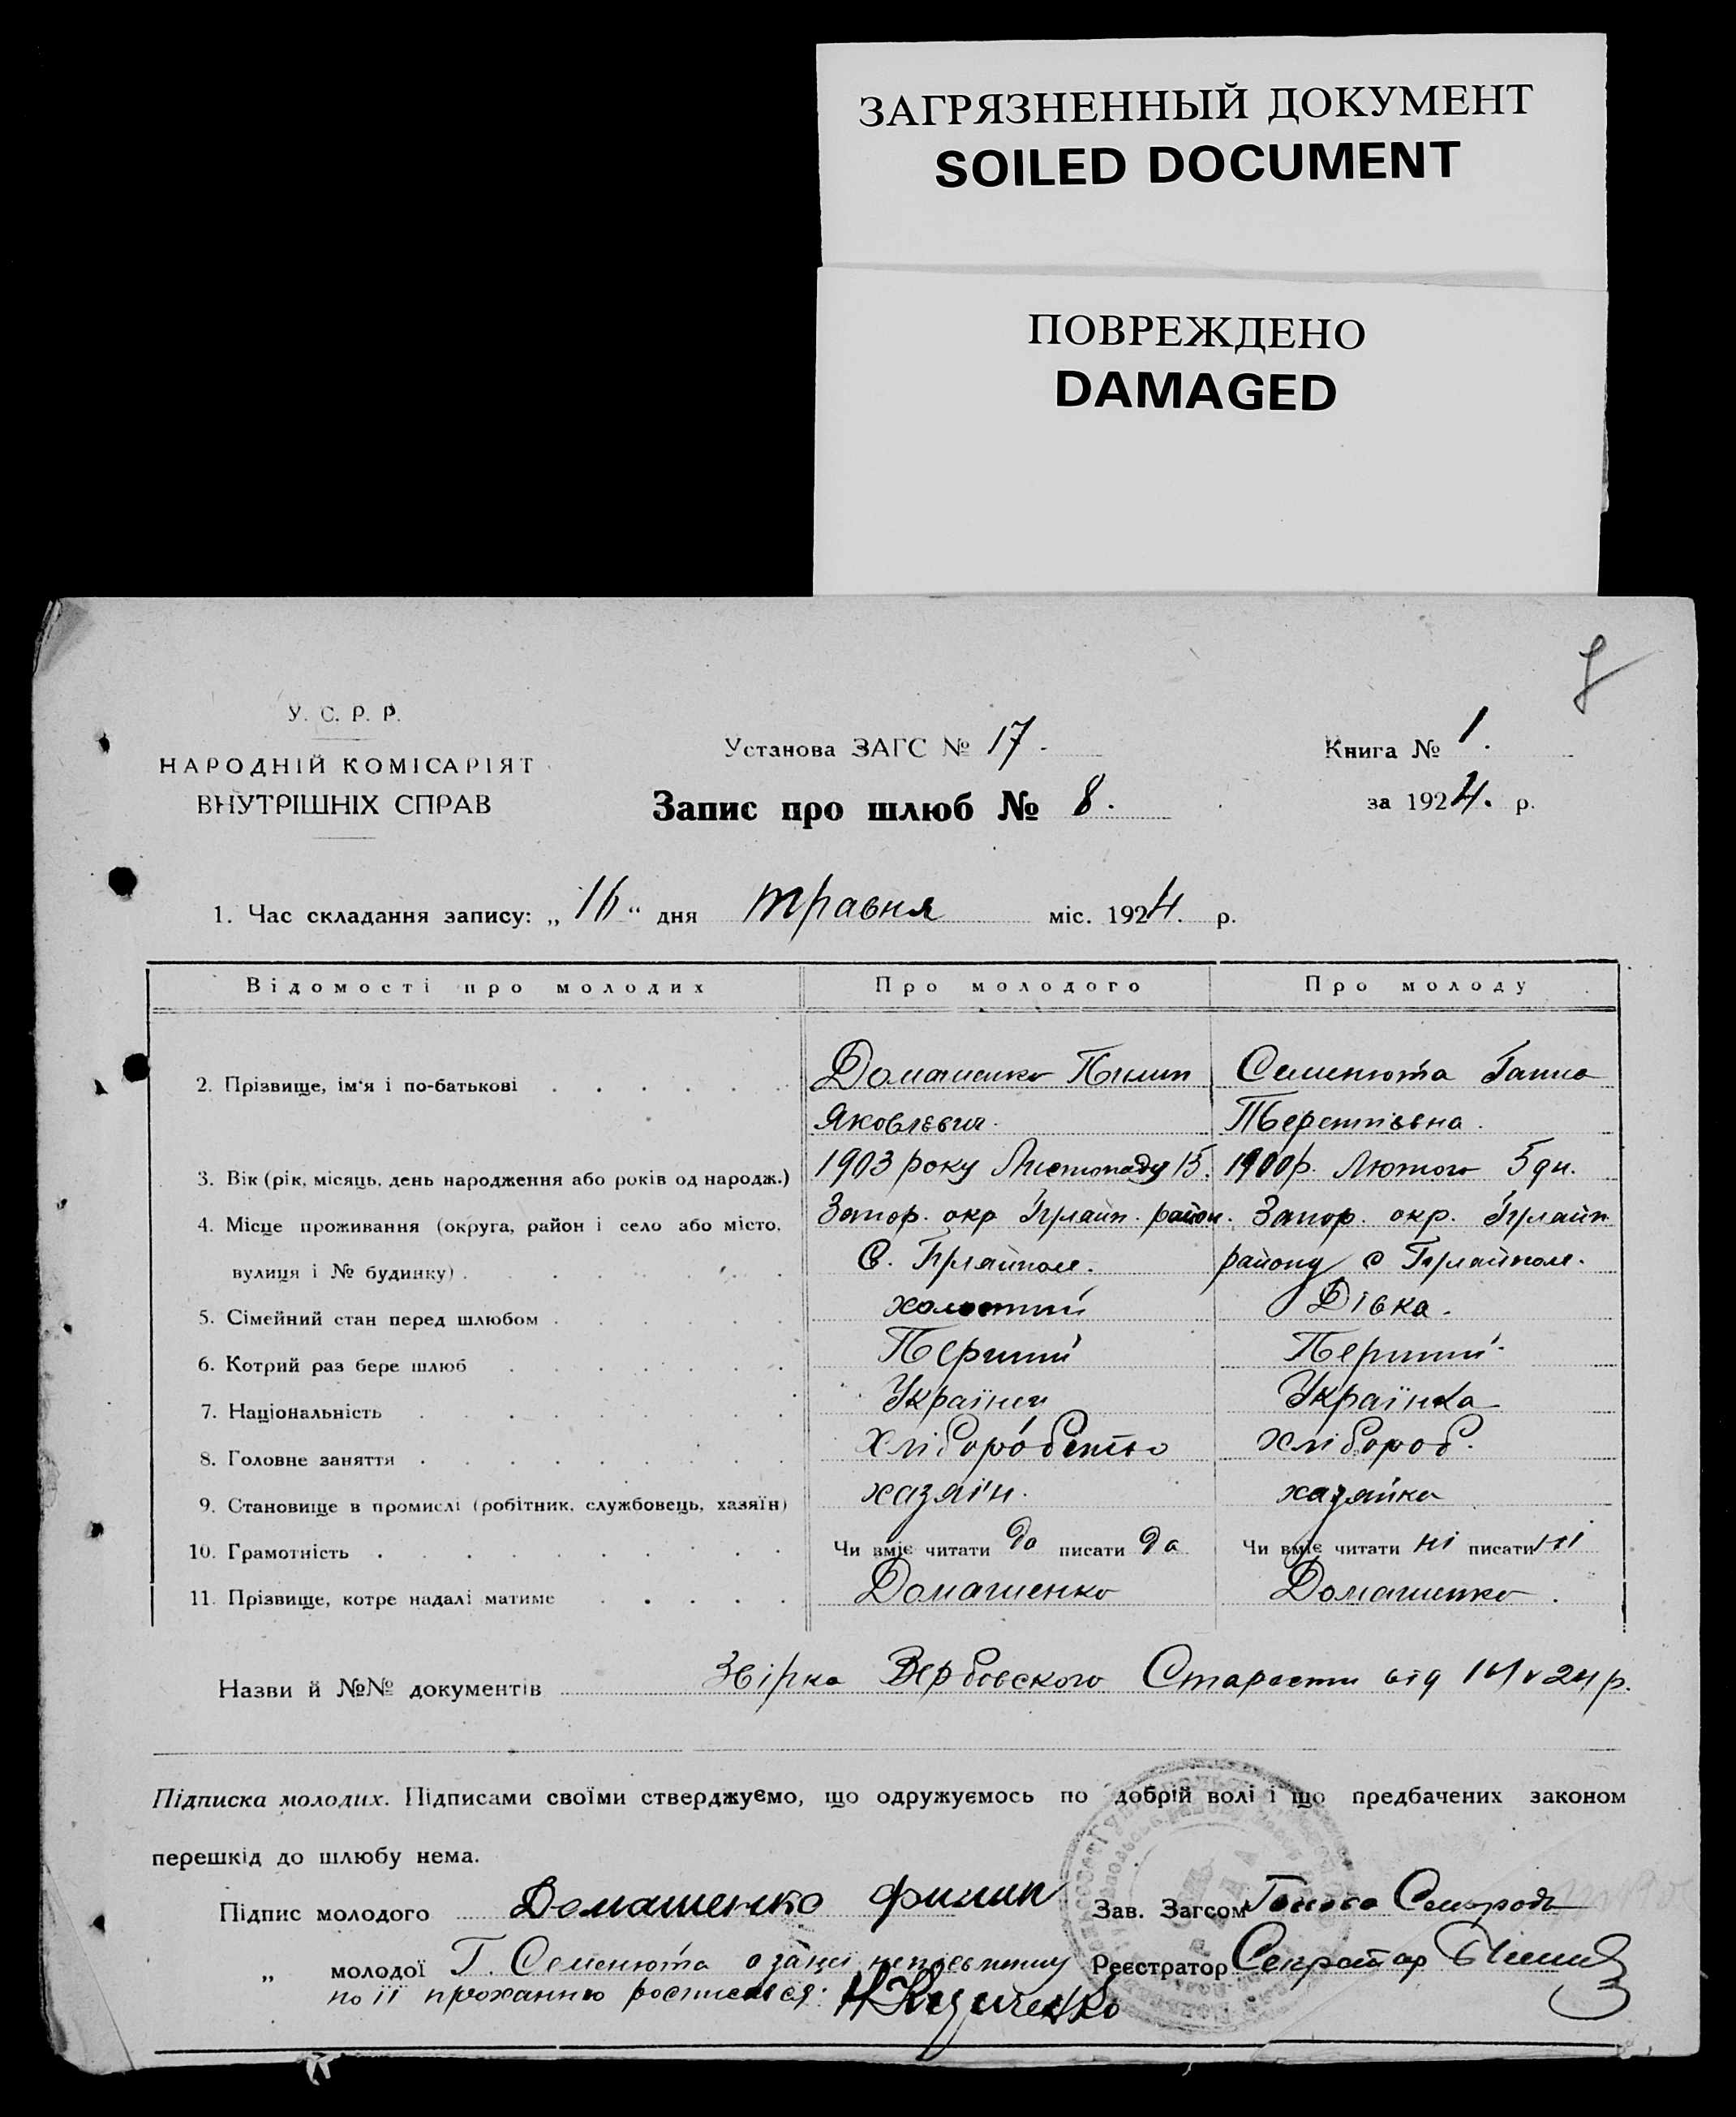 ЗАГРЯЗНЕННЫЙ ДОКУМЕНТ
SOILED DOCUMENT
ПОВРЕЖДЕНО
DAMAGED
У. С. Р. Р.
НАРОДНІЙ КОМІСАРІЯТ
ВНУТРІШНІХ СПРАВ
Установа ЗАГС № 17.
Запис про шлюб № 8.
Книга № 1.
за 1924. р.
1. Час складання запису: „16“ дня травня міс. 1924. р.
Відомості про молодих Про молодого Про молоду
2. Прізвище, ім'я і по-батькові Домашенко Пилип Семенюта Ганна
Яковлевич. Терентієвна.
3. Вік (рік, місяць, день народження або років од народж.) 1903 року Листопаду 15. 1900 р. Лютого 5 дн.
4. Місце проживання (округа, район і село або місто, Запор. окр Гуляйп. район. Запор. окр. Гуляйп
вулиця і № будинку). С. Гуляйполе. району с Гуляйполе.
5. Сімейний стан перед шлюбом холостий Дівка.
6. Котрий раз бере шлюб Перший Перший.
7. Національність Українец Українка
8. Головне заняття Хліборобство хлібороб.
9. Становище в промислі (робітник, службовець, хазяїн) хазяїн. хазяйка
10. Грамотність Чи вміє читати да писати да Чи вміє читати ні писати ні
11. Прізвище, котре надалі матиме Домашенко Домашенко.
Назви й №№ документів Вербовского Старости від 14 V 24 р.
Підписка молодих. Підписами своїми стверджуємо, що одружуємось по добрій волі і що предбачених законом
перешкід до шлюбу нема.
Підпис молодого Домашенко Филип Зав. Загсом
„ молодої Г. Семенюта а за неї неписьменну Реєстратор Секретар
по її проханню росписався: